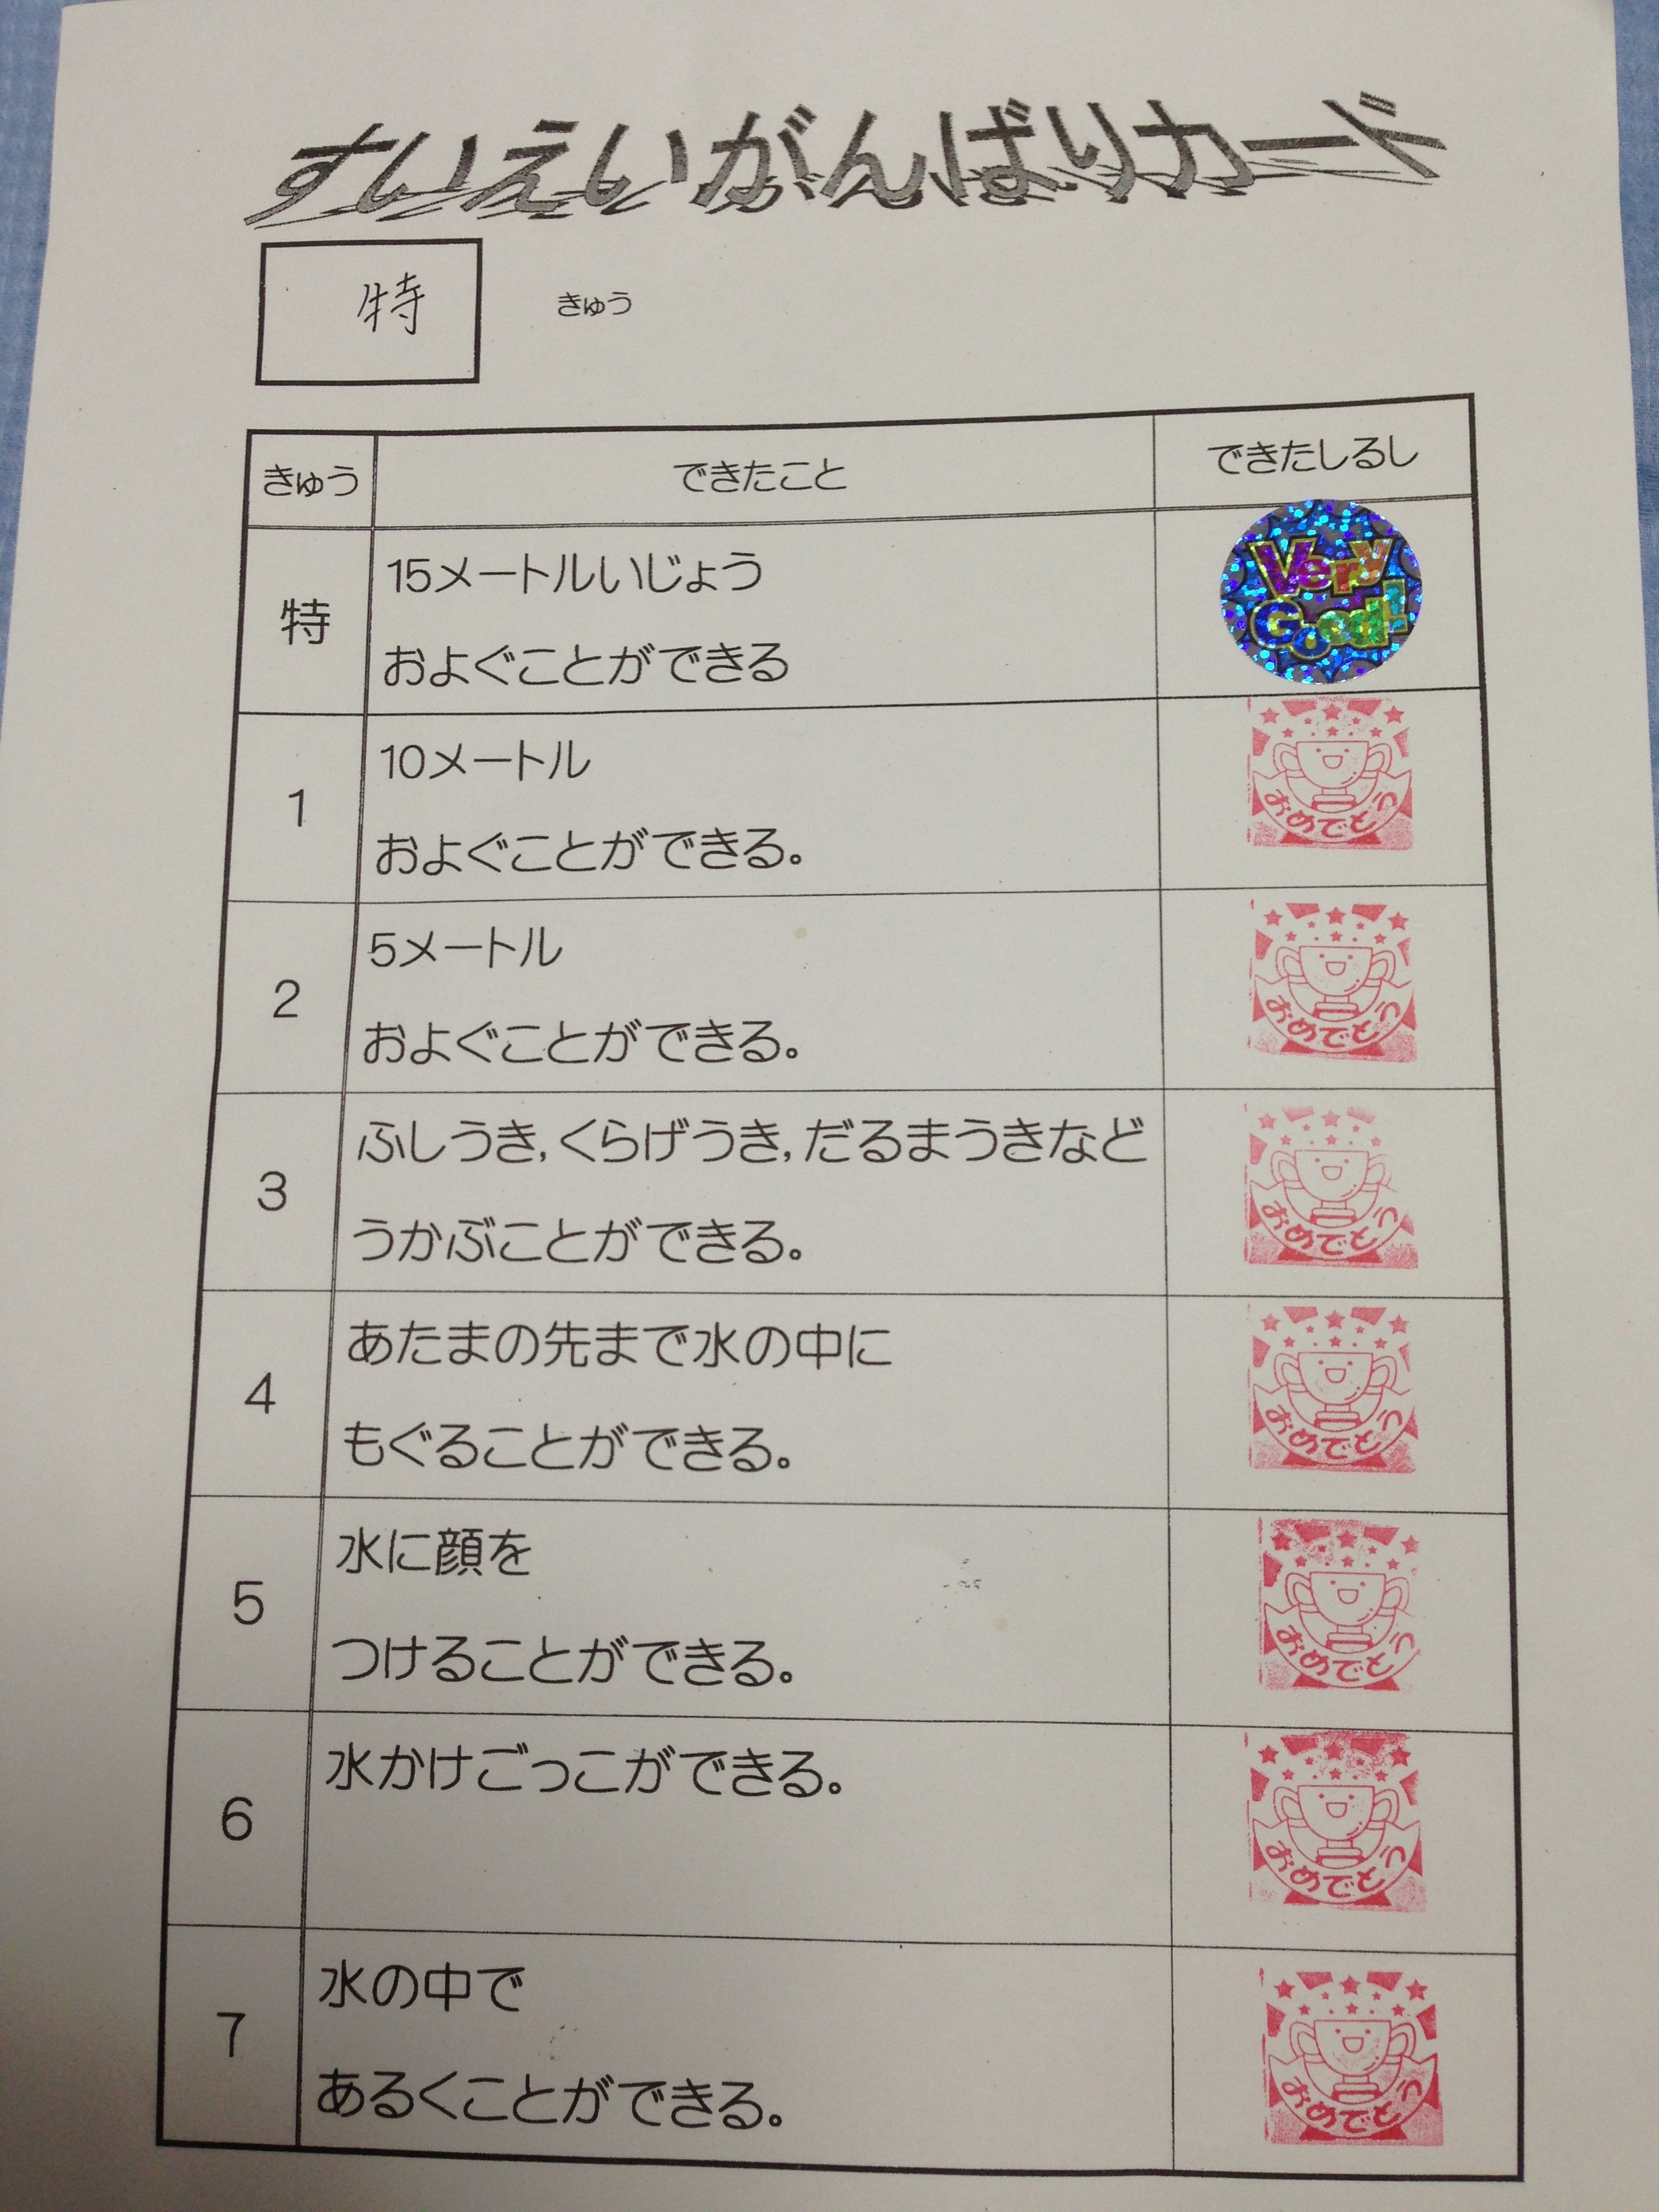 すいえいがんばりカード
特 きゅう
きゅう できたこと できたしるし
特 15メートルいじょう
およぐことができる
Very
Good!
1 10メートル
およぐことができる。
おめでとう
2 5メートル
およぐことができる。
おめでとう
3 ふしうき,くらげうき,だるまうきなど
うかぶことができる。
おめでとう
4 あたまの先まで水の中に
もぐることができる。
おめでとう
5 水に顔を
つけることができる。
おめでとう
6 水かけごっこができる。
おめでとう
7 水の中で
あるくことができる。
おめでとう